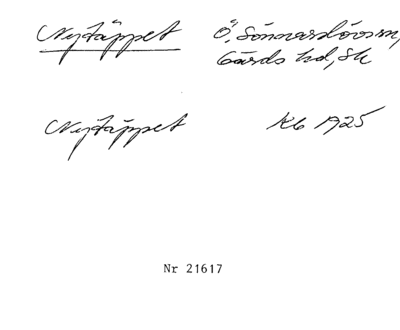 Nytäppet Ö. Sönnarslövs sn,
Gärds hd, Sk
Nytäppet Kb 1925
Nr 21617